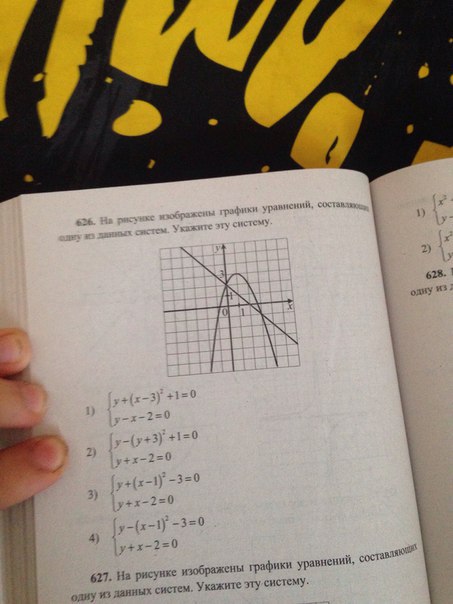 626. На рисунке изображены графики уравнений, составляющих
одну из данных систем. Укажите эту систему.
y
3
1
0 1 x
1) {y+(x−3)²+1=0
{y−x−2=0
2) {y−(y+3)²+1=0
{y+x−2=0
3) {y+(x−1)²−3=0
{y+x−2=0
4) {y−(x−1)²−3=0
{y+x−2=0
627. На рисунке изображены графики уравнений, составляющих
одну из данных систем. Укажите эту систему.
1) {x²
{y−
2) {x²
{y
628.
одну из